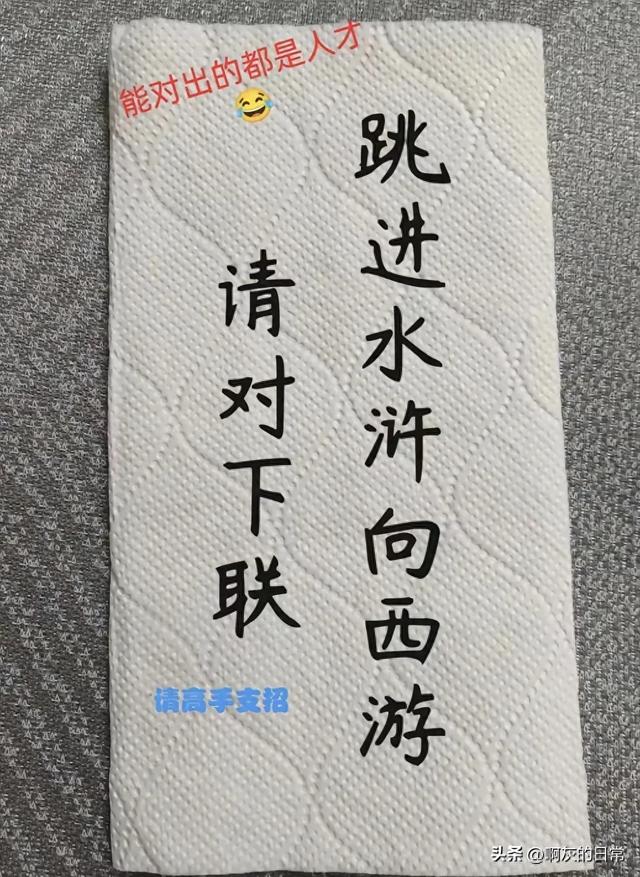 能对出的都是人才😂
跳进水浒向西游
请对下联
请高手支招
头条 @啊灰的日常